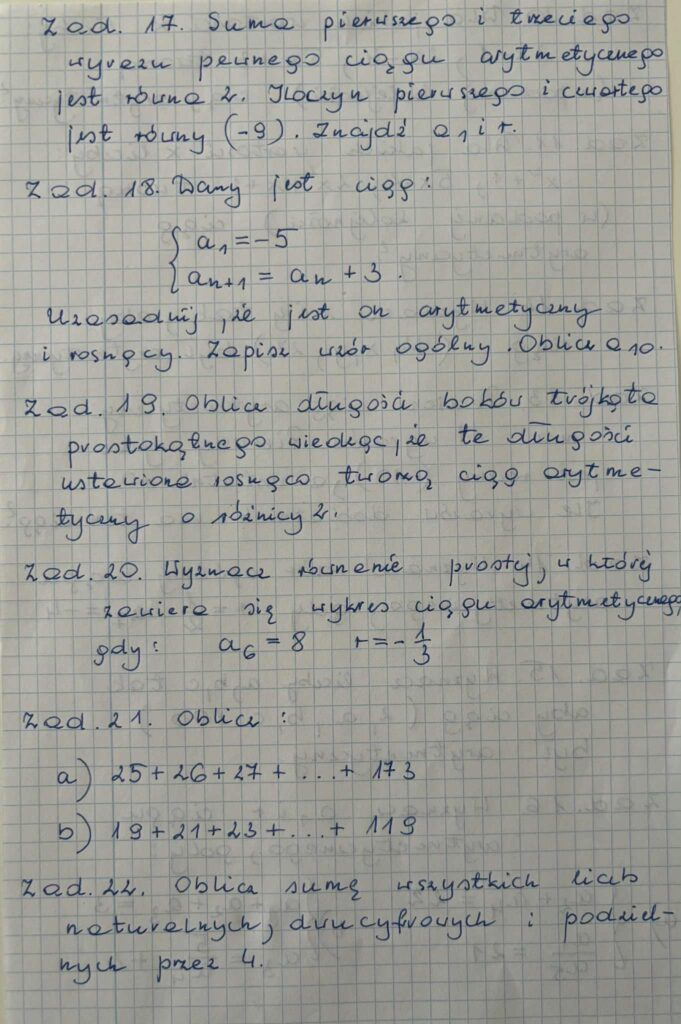 Zad. 17. Suma pierwszego i trzeciego
wyrazu pewnego ciągu arytmetycznego
jest równa 2. Iloczyn pierwszego i czwartego
jest równy (-9). Znajdź a₁ i r.
Zad. 18. Dany jest ciąg:
{ a₁ = -5
{ aₙ₊₁ = aₙ + 3 .
Uzasadnij, że jest on arytmetyczny
i rosnący. Zapisz wzór ogólny. Oblicz a₁₀.
Zad. 19. Oblicz długości boków trójkąta
prostokątnego wiedząc, że te długości
ustawione rosnąco tworzą ciąg arytme-
tyczny o różnicy 2.
Zad. 20. Wyznacz równanie prostej, w której
zawiera się wykres ciągu arytmetycznego,
gdy: a₆ = 8 r = -1/3
Zad. 21. Oblicz :
a) 25 + 26 + 27 + ... + 173
b) 19 + 21 + 23 + ... + 119
Zad. 22. Oblicz sumę wszystkich liczb
naturalnych, dwucyfrowych i podziel-
nych przez 4.